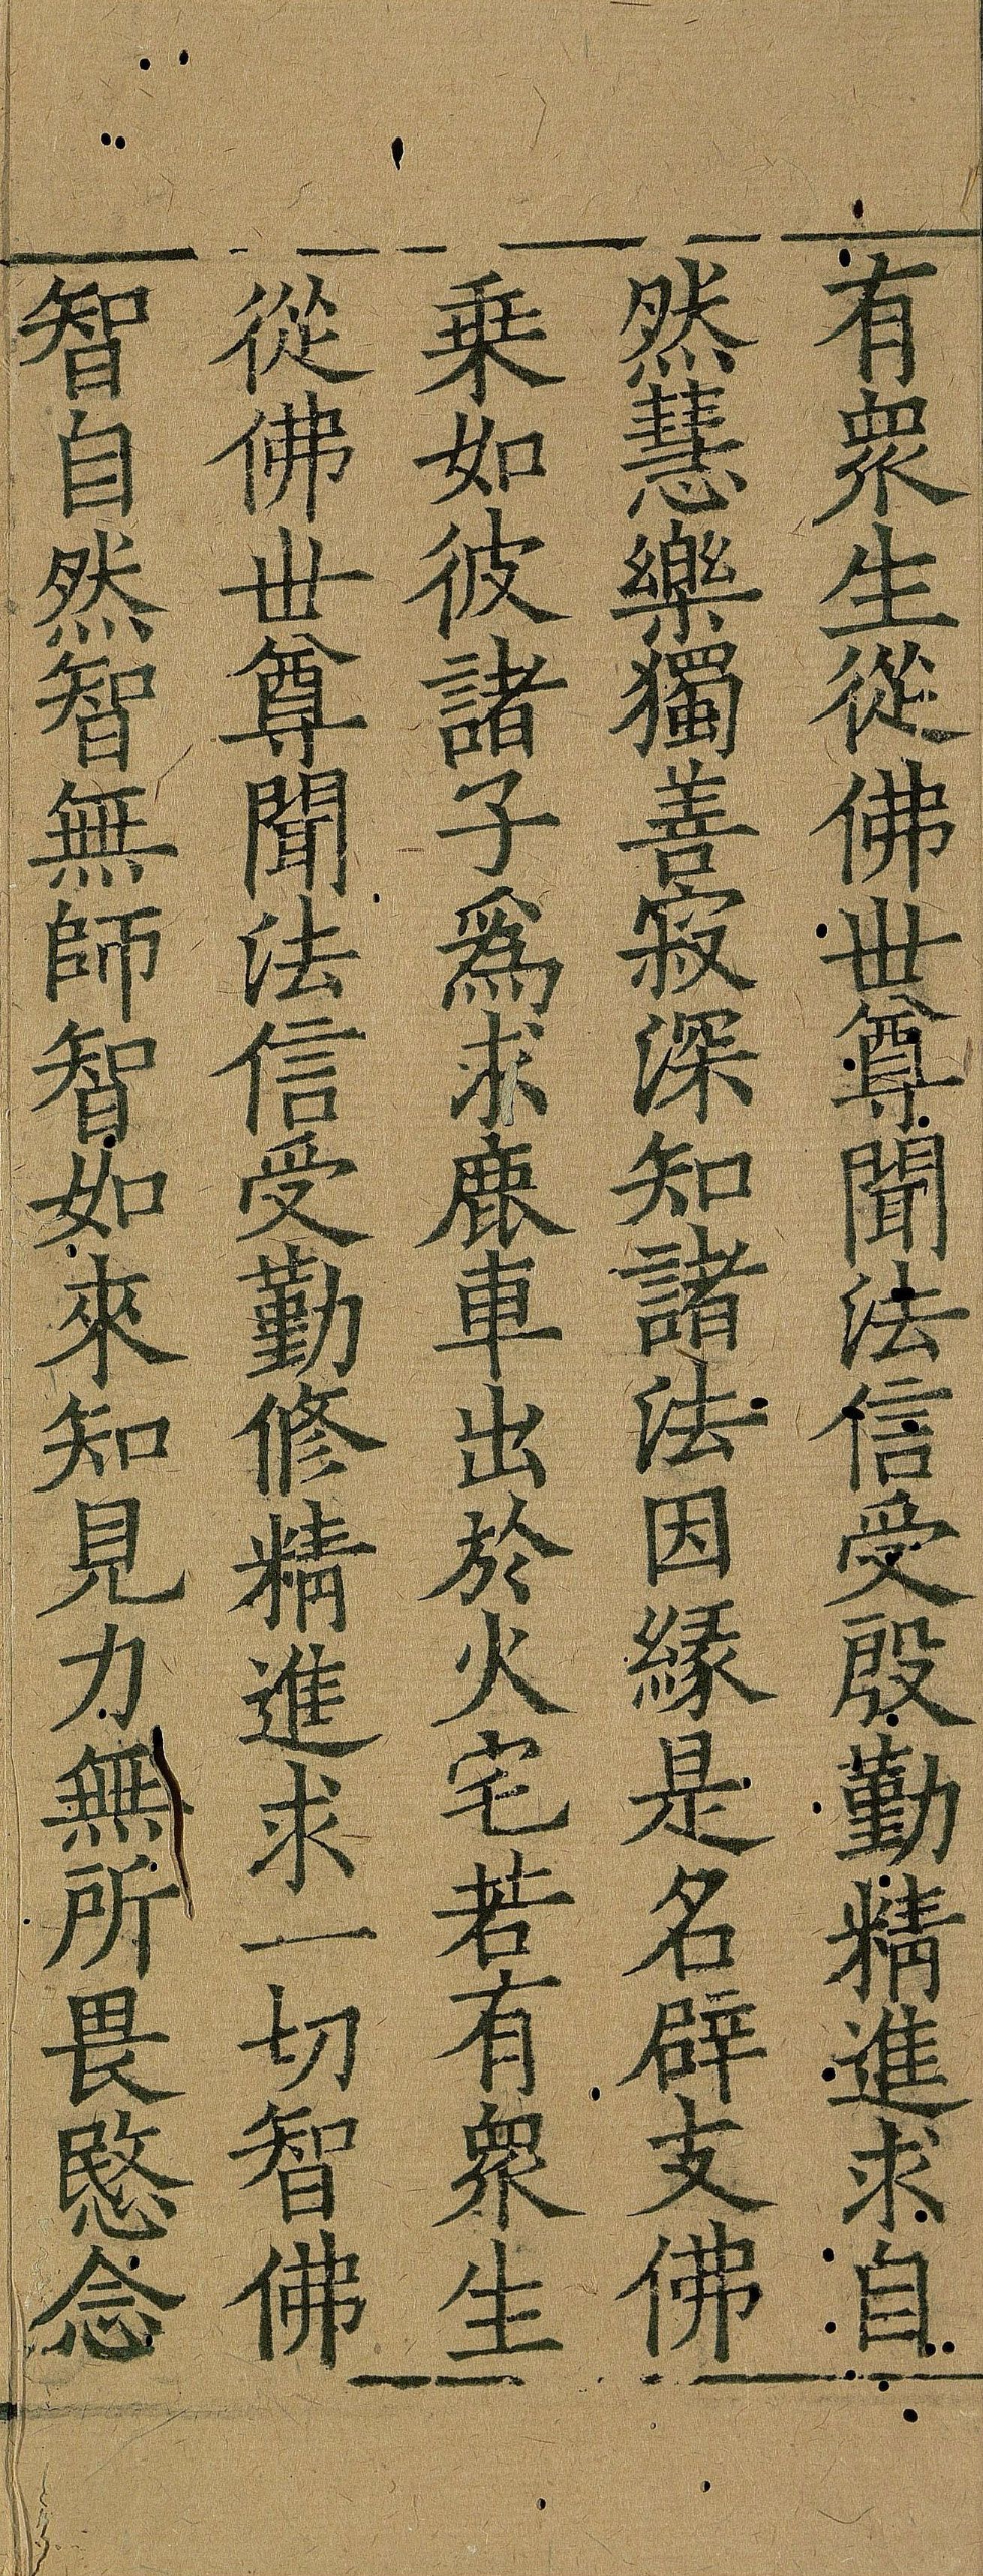 有衆生從佛世尊聞法信受殷勤精進求自
然慧樂獨善寂深知諸法因縁是名辟支佛
乗如彼諸子爲求鹿車出於火宅若有衆生
從佛世尊聞法信受勤修精進求一切智佛
智自然智無師智如來知見力無所畏愍念